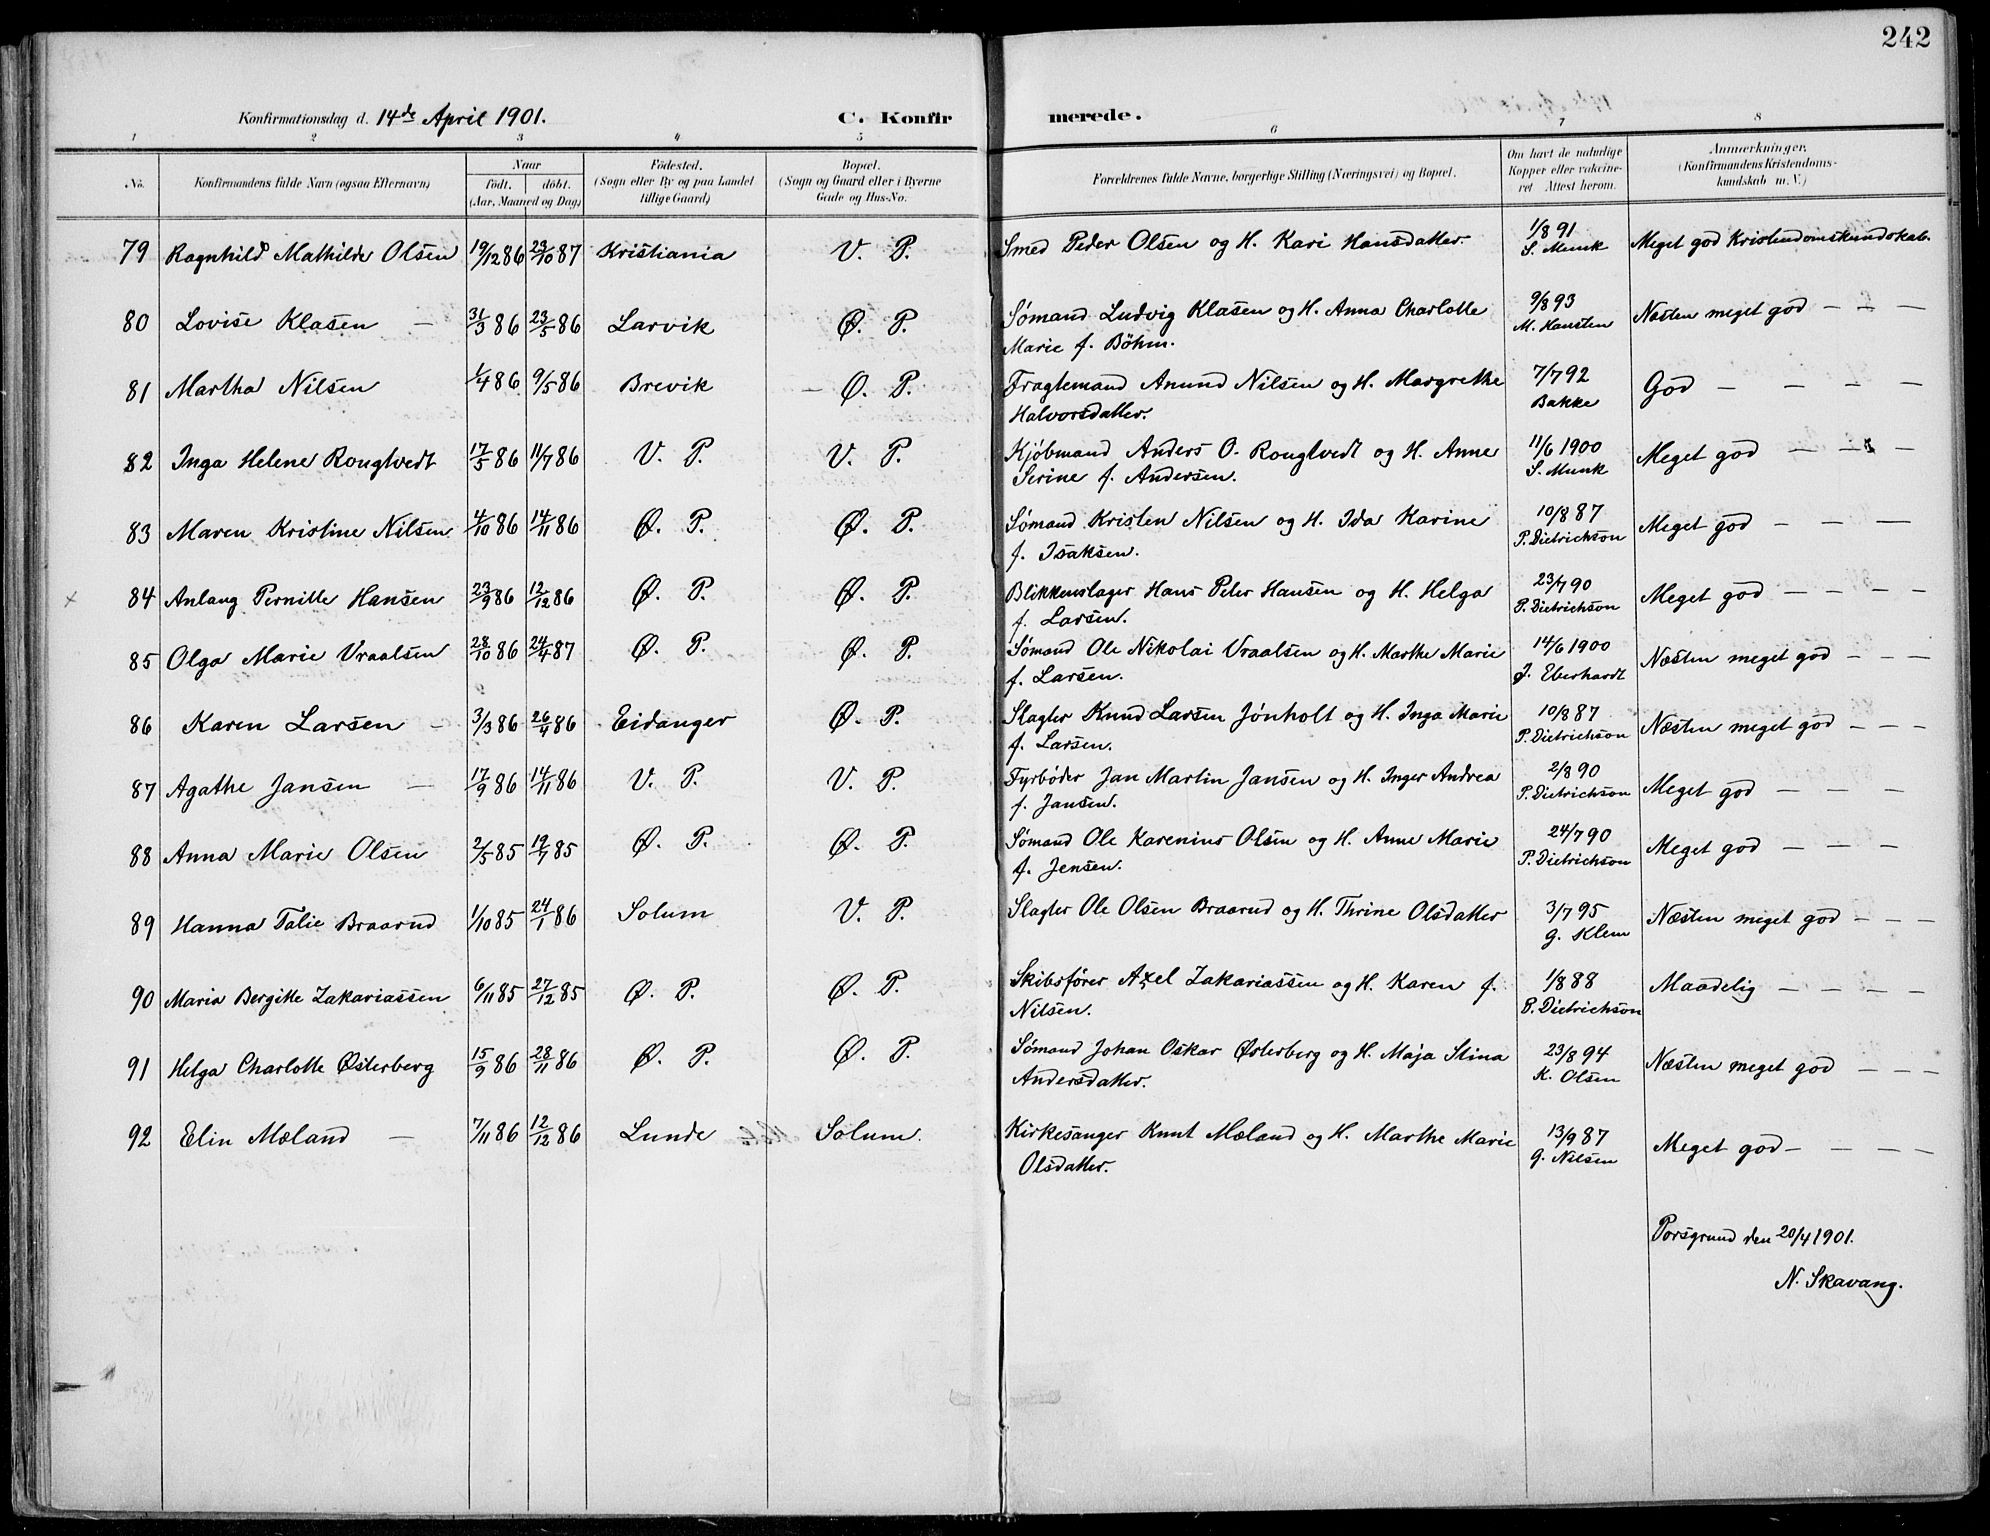 242
Konfirmationsdag d. 14de April 1901. C. Konfirmerede.
1 2 3 4 5 6 7 8
No. Konfirmandens fulde Navn (ogsaa Efternavn) Naar født. døbt. (Aar, Maaned og Dag) Fødested. (Sogn eller By og paa Landet tillige Gaard) Bopæl. (Sogn og Gaard eller i Byerne Gade og Hus-No. Forældrenes fulde Navne, borgerlige Stilling (Næringsvei) og Bopæl. Om havt de naturlige Kopper eller vaccineret Attest herom. Anmærkninger. (Konfirmandens Kristendomskundskab m. V.)
79 Ragnhild Mathilde Olsen 19/12 86 23/10 87 Kristiania V. P. Smed Peder Olsen og H. Kari Hansdatter. 1/8 91 S. Munk Meget god Kristendomskundskab.
80 Lovise Klasen — 31/3 86 23/5 86 Larvik Ø. P. Sømand Ludvig Klasen og H. Anna Charlotte 9/8 93 M. Hansten Næsten meget god — — —
Marie f. Böhm.
81 Martha Nilsen 1/4 86 9/5 86 Brevik — Ø. P. Fragtemand Anund Nilsen og H. Margrethe 7/7 92 Bakke God — — — —
Halvorsdatter.
82 Inga Helene Rougtvedt 17/5 86 11/7 86 V. P. V. P. Kjøbmand Anders O. Rougtvedt og H. Anne 11/6 1900 S. Munk Meget god — — —
Serine f. Andersen.
83 Maren Kristine Nilsen 4/10 86 14/11 86 Ø. P. Ø. P. Sømand Kristen Nilsen og H. Ida Karine 10/8 87 P. Dietrichson Meget god — — —
f. Isaksen.
× 84 Anlaug Pernille Hansen 23/9 86 12/12 86 Ø. P. Ø. P. Blikkenslager Hans Peter Hansen og H. Helga 23/7 90 P. Dietrichson Meget god — — — —
f. Larsen.
85 Olga Marie Vraalsen 28/10 86 24/4 87 Ø. P. Ø. P. Sømand Ole Nikolai Vraalsen og H. Marthe Marie 14/6 1900 J. Eberhardt Næsten meget god — — —
f. Larsen.
86 Karen Larsen — 3/3 86 26/4 86 Eidanger Ø. P. Slagter Knud Larsen Jönholt og H. Inga Marie 10/8 87 P. Dietrichson Næsten meget god — — —
f. Larsen.
87 Agathe Jansen — 17/9 86 14/11 86 V. P. V. P. Fyrbøder Jan Martin Jansen og H. Inger Andrea 2/8 90 P. Dietrichson Meget god — — —
f. Jansen.
88 Anna Marie Olsen 2/5 85 19/7 85 Ø. P. Ø. P. Sømand Ole Karenius Olsen og H. Anne Marie 24/7 90 P. Dietrichson Meget god — — —
f. Jensen.
89 Hanna Talie Braarud 1/10 85 24/1 86 Solum V. P. Slagter Ole Olsen Braarud og H. Thrine Olsdatter 3/7 95 G. Klem Næsten meget god — — —
90 Maria Bergitte Zakariassen 6/11 85 27/12 85 Ø. P. Ø. P. Skibsfører Axel Zakariassen og H. Karen f. 1/8 88 P. Dietrichson Maadelig — — — —
Nilsen.
91 Helga Charlotte Østerberg 15/9 86 28/11 86 Ø. P. Ø. P. Sømand Johan Oskar Østerberg og H. Maja Stina 23/8 94 K. Olsen Næsten meget god — — —
Andersdatter.
92 Elin Mæland — 7/11 86 12/12 86 Lunde Solum. Kirkesanger Knut Mæland og H. Marthe Marie 13/9 87 G. Nilsen Meget god — — — —
Olsdatter.
Porsgrund den 20/4 1901.
N. Skavang.